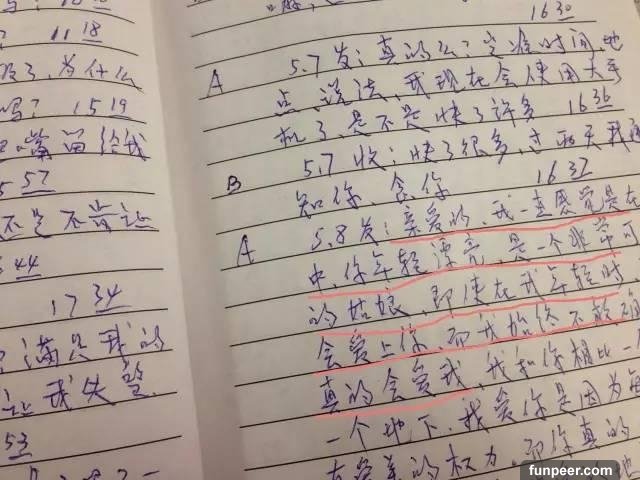 11 18
为什么
吗? 15 19
嘴留给我
5 57
不是不肯让
44
17 34
满足我的
让我失望.
53
16 30
A 5.7发:真的么?定准时间,地
点,说法,我现在会使用大手
机了是不是快了许多 16 36
B 5.7收:快了很多,过两天我通
知你、念你 16 37
A 5.8发:亲爱的,我一直感觉是在
中,你年轻漂亮,是一个非常可
的姑娘,即使在我年轻时
会爱上你,而我始终不敢
真的会爱我,我和你相比一个
一个地下,我爱你是因为每
权力,而你真的
funpeer.com